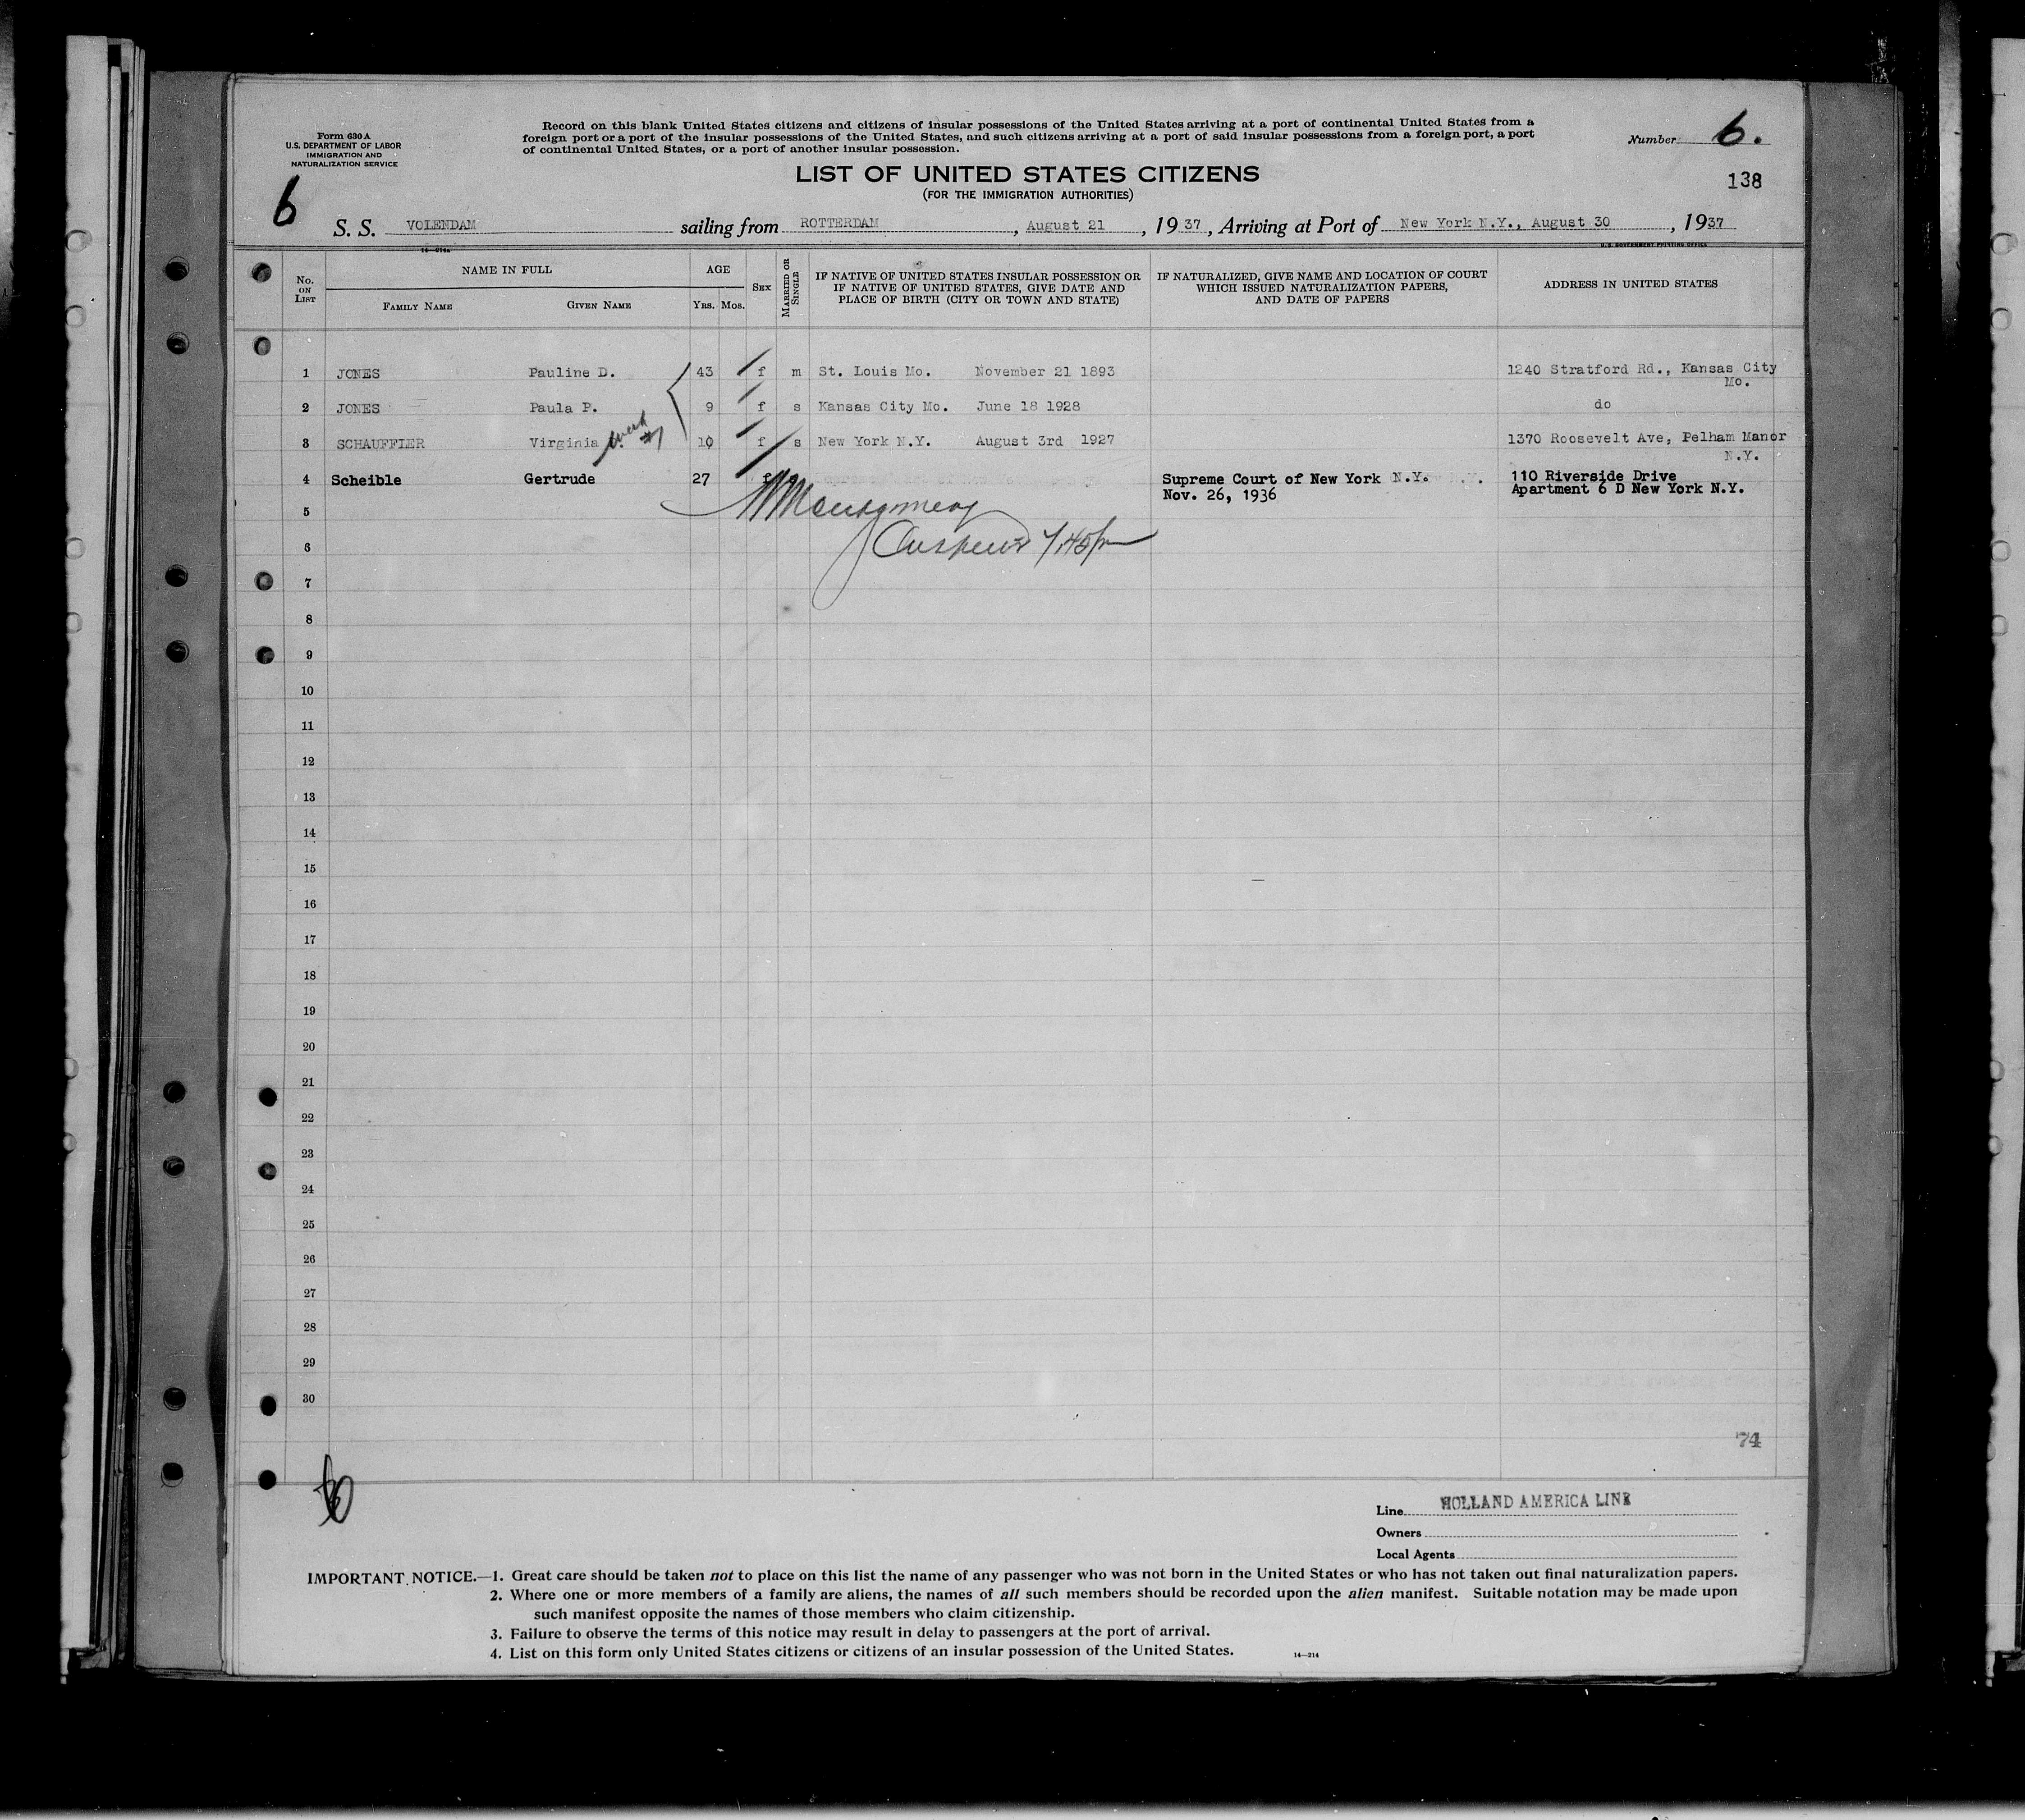 Form 630 A
U.S. DEPARTMENT OF LABOR
IMMIGRATION AND
NATURALIZATION SERVICE
Record on this blank United States citizens and citizens of insular possessions of the United States arriving at a port of continental United States from a
foreign port or a port of the insular possessions of the United States, and such citizens arriving at a port of said insular possessions from a foreign port, a port
of continental United States, or a port of another insular possession.
Number 6.
LIST OF UNITED STATES CITIZENS
(FOR THE IMMIGRATION AUTHORITIES)
138
6
S. S. VOLENDAM sailing from ROTTERDAM, August 21, 1937, Arriving at Port of New York N.Y., August 30, 1937
14—214a
U.S. GOVERNMENT PRINTING OFFICE
No. ON LIST
NAME IN FULL
FAMILY NAME GIVEN NAME
AGE
YRS. MOS.
SEX
MARRIED OR SINGLE
IF NATIVE OF UNITED STATES INSULAR POSSESSION OR
IF NATIVE OF UNITED STATES, GIVE DATE AND
PLACE OF BIRTH (CITY OR TOWN AND STATE)
IF NATURALIZED, GIVE NAME AND LOCATION OF COURT
WHICH ISSUED NATURALIZATION PAPERS,
AND DATE OF PAPERS
ADDRESS IN UNITED STATES
1 JONES Pauline D. 43 f m St. Louis Mo. November 21 1893 1240 Stratford Rd., Kansas City
Mo.
2 JONES Paula P. 9 f s Kansas City Mo. June 18 1928 do
3 SCHAUFFIER Virginia 10 f s New York N.Y. August 3rd 1927 1370 Roosevelt Ave, Pelham Manor
N.Y.
4 Scheible Gertrude 27 f Supreme Court of New York N.Y. 110 Riverside Drive
Nov. 26, 1936 Apartment 6 D New York N.Y.
Montgomery
5
6
7
8
9
10
11
12
13
14
15
16
17
18
19
20
21
22
23
24
25
26
27
28
29
30
74
6
Line HOLLAND AMERICA LINE
Owners
Local Agents
IMPORTANT NOTICE.—1. Great care should be taken not to place on this list the name of any passenger who was not born in the United States or who has not taken out final naturalization papers.
2. Where one or more members of a family are aliens, the names of all such members should be recorded upon the alien manifest. Suitable notation may be made upon
such manifest opposite the names of those members who claim citizenship.
3. Failure to observe the terms of this notice may result in delay to passengers at the port of arrival.
4. List on this form only United States citizens or citizens of an insular possession of the United States.
14—214